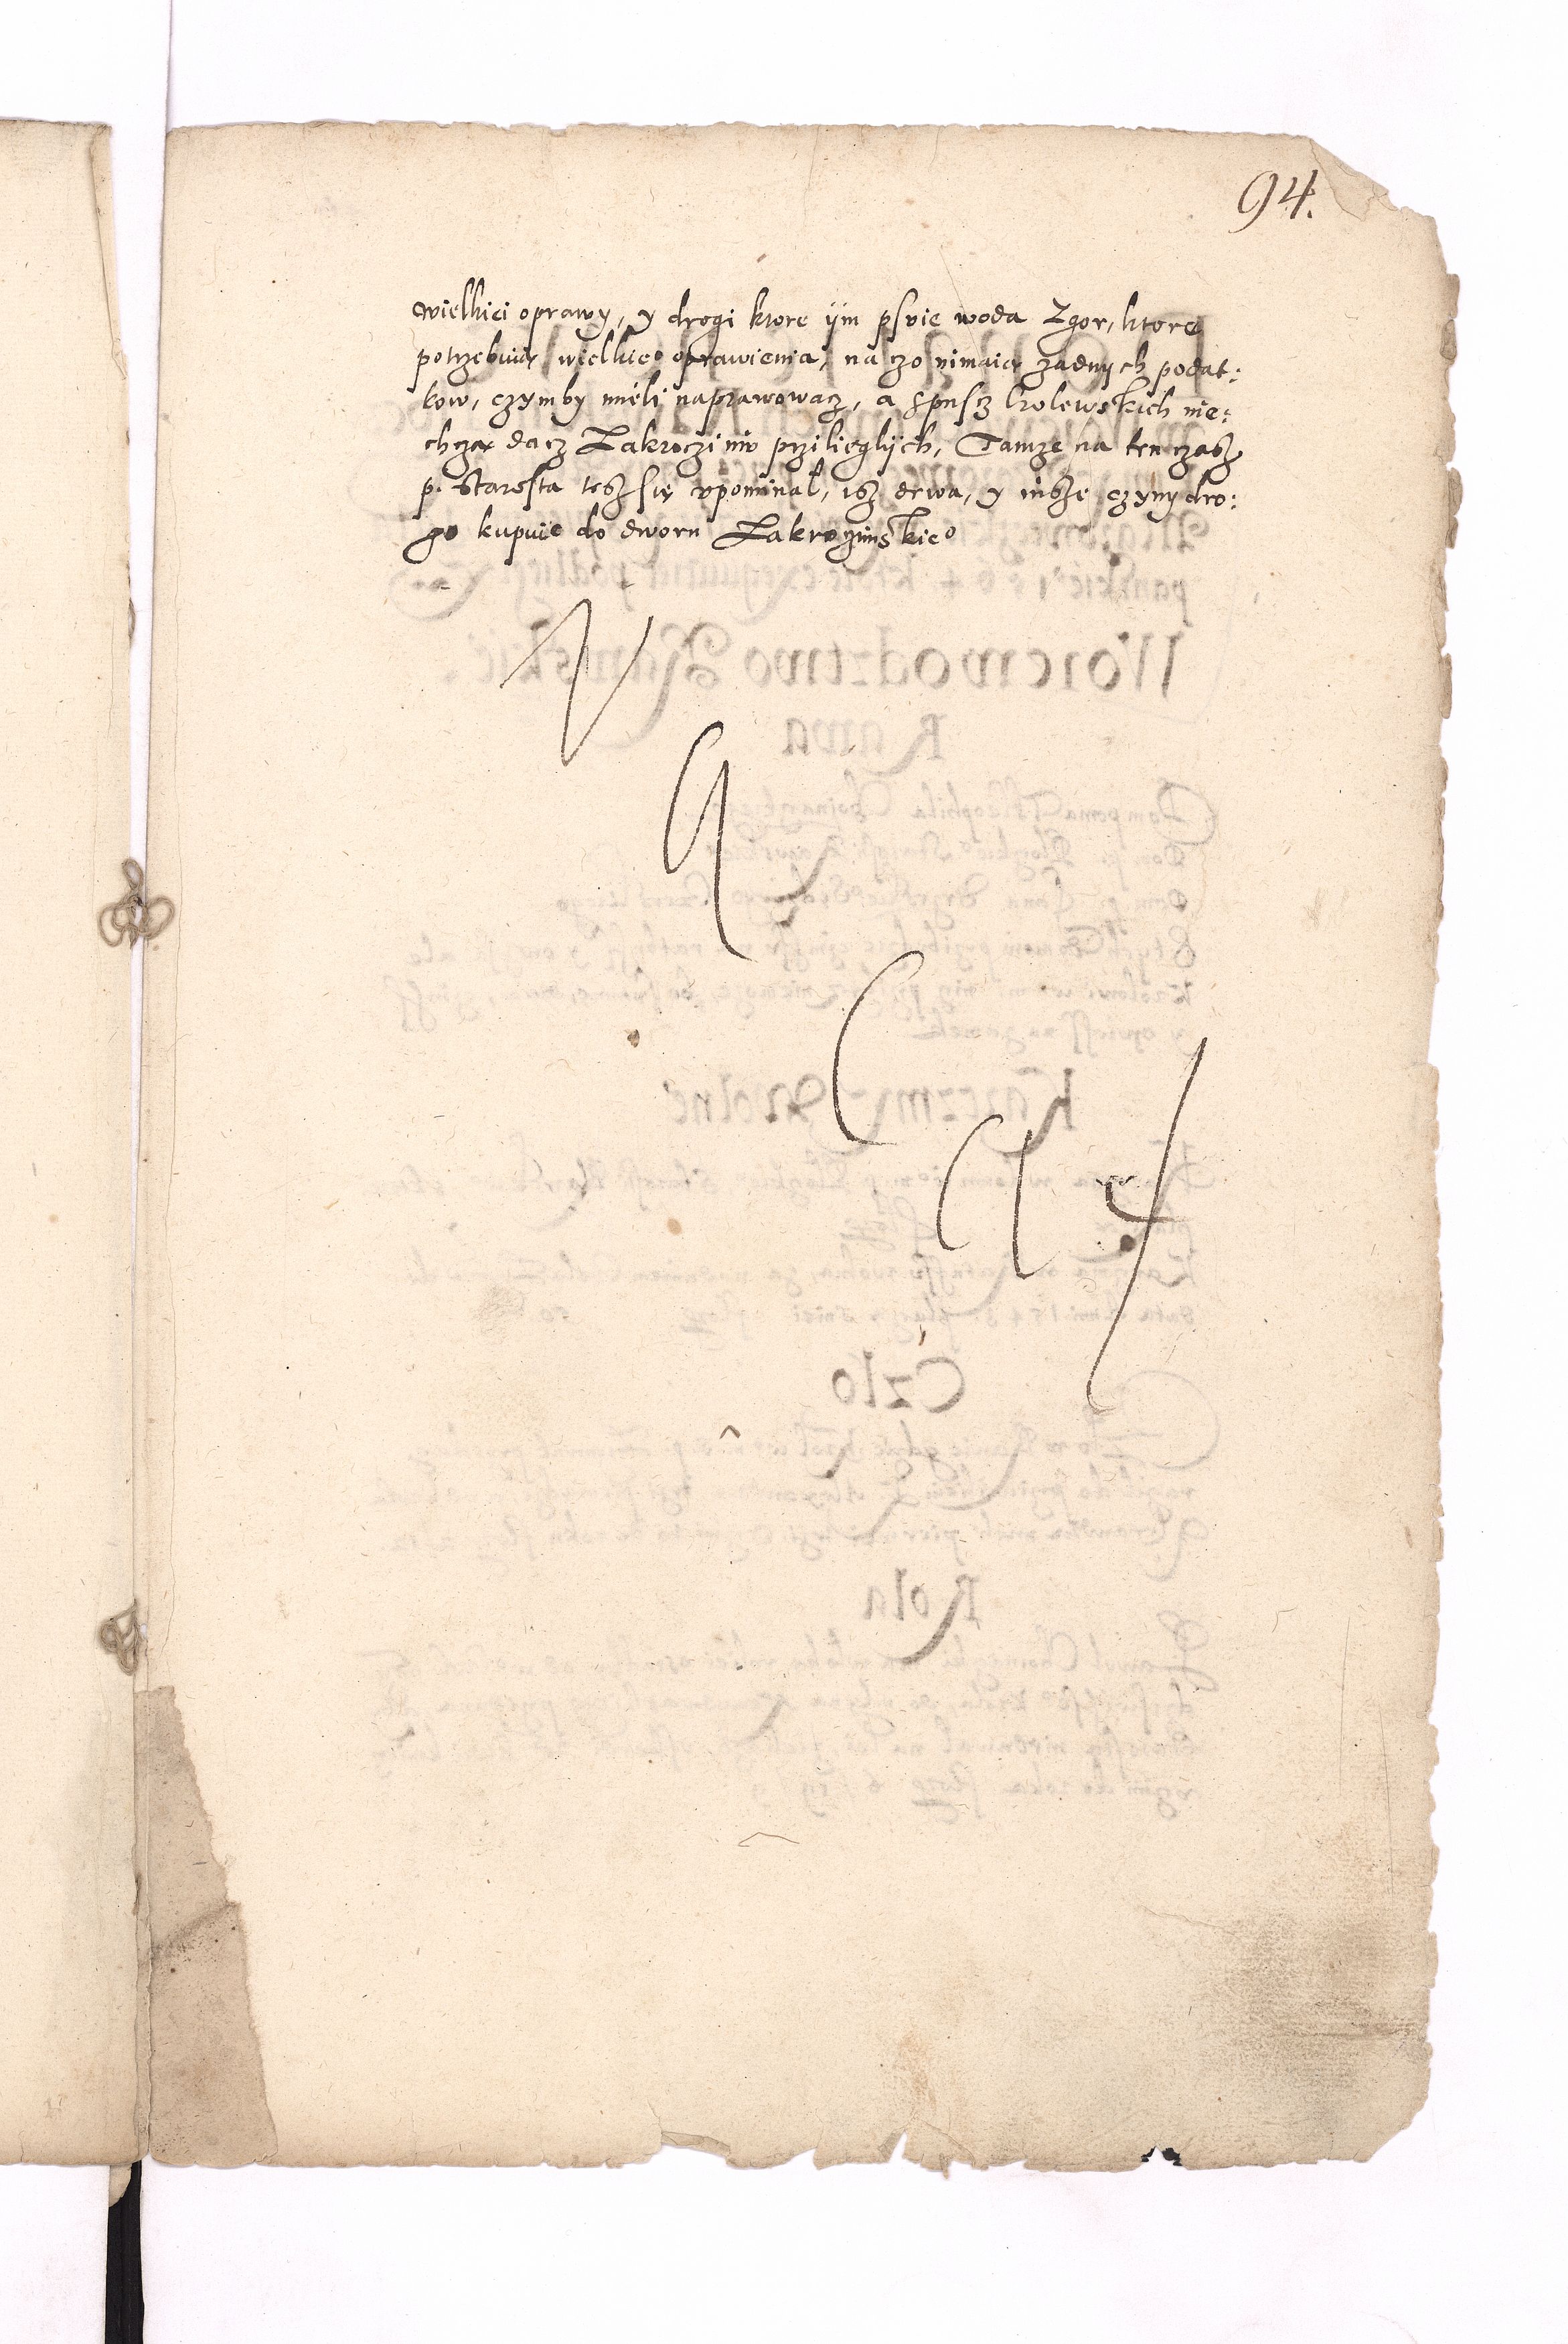 94.
wielkiei oprawy, y drogi ktore ijm psvie woda Zgor, ktore
potrzebuią wielkieo oprawienia, na czo nimaią zadnych podat:
kow, czymby mieli naprawowacz, a spuscz krolewskich nie:
chczą dacz Zakroczimo przilieglijch, Tamze na ten czasz
p. Starosta tesz się vpominal, isz drwa, y insze czyny dro:
go kupuie do dworu Zakroczimskieo
Vacat